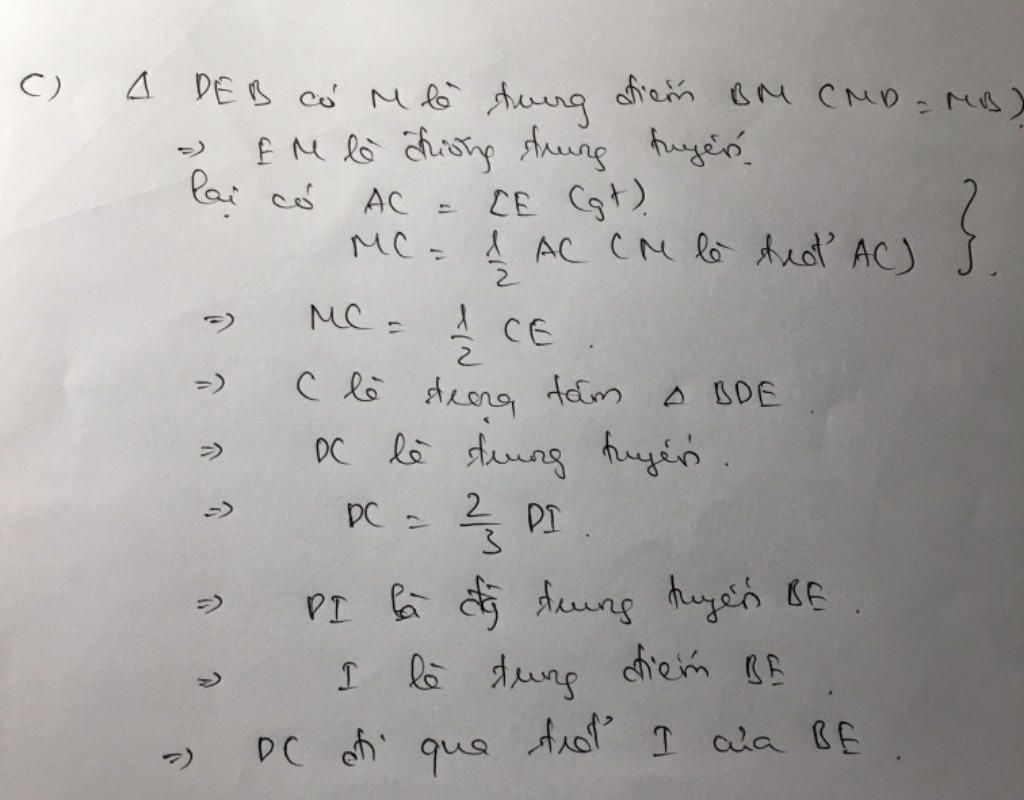 C) Δ DEB có M là trung điểm BM (MD = MB)
=> EM là đường trung tuyến.
lại có AC = CE (gt).
MC = 1/2 AC (M là trđ' AC) }
=> MC = 1/2 CE.
=> C là trọng tâm Δ BDE.
=> DC là trung tuyến.
=> DC = 2/3 DI.
=> DI là đg trung tuyến BE.
=> I là trung điểm BE.
=> DC đi qua trđ' I của BE.